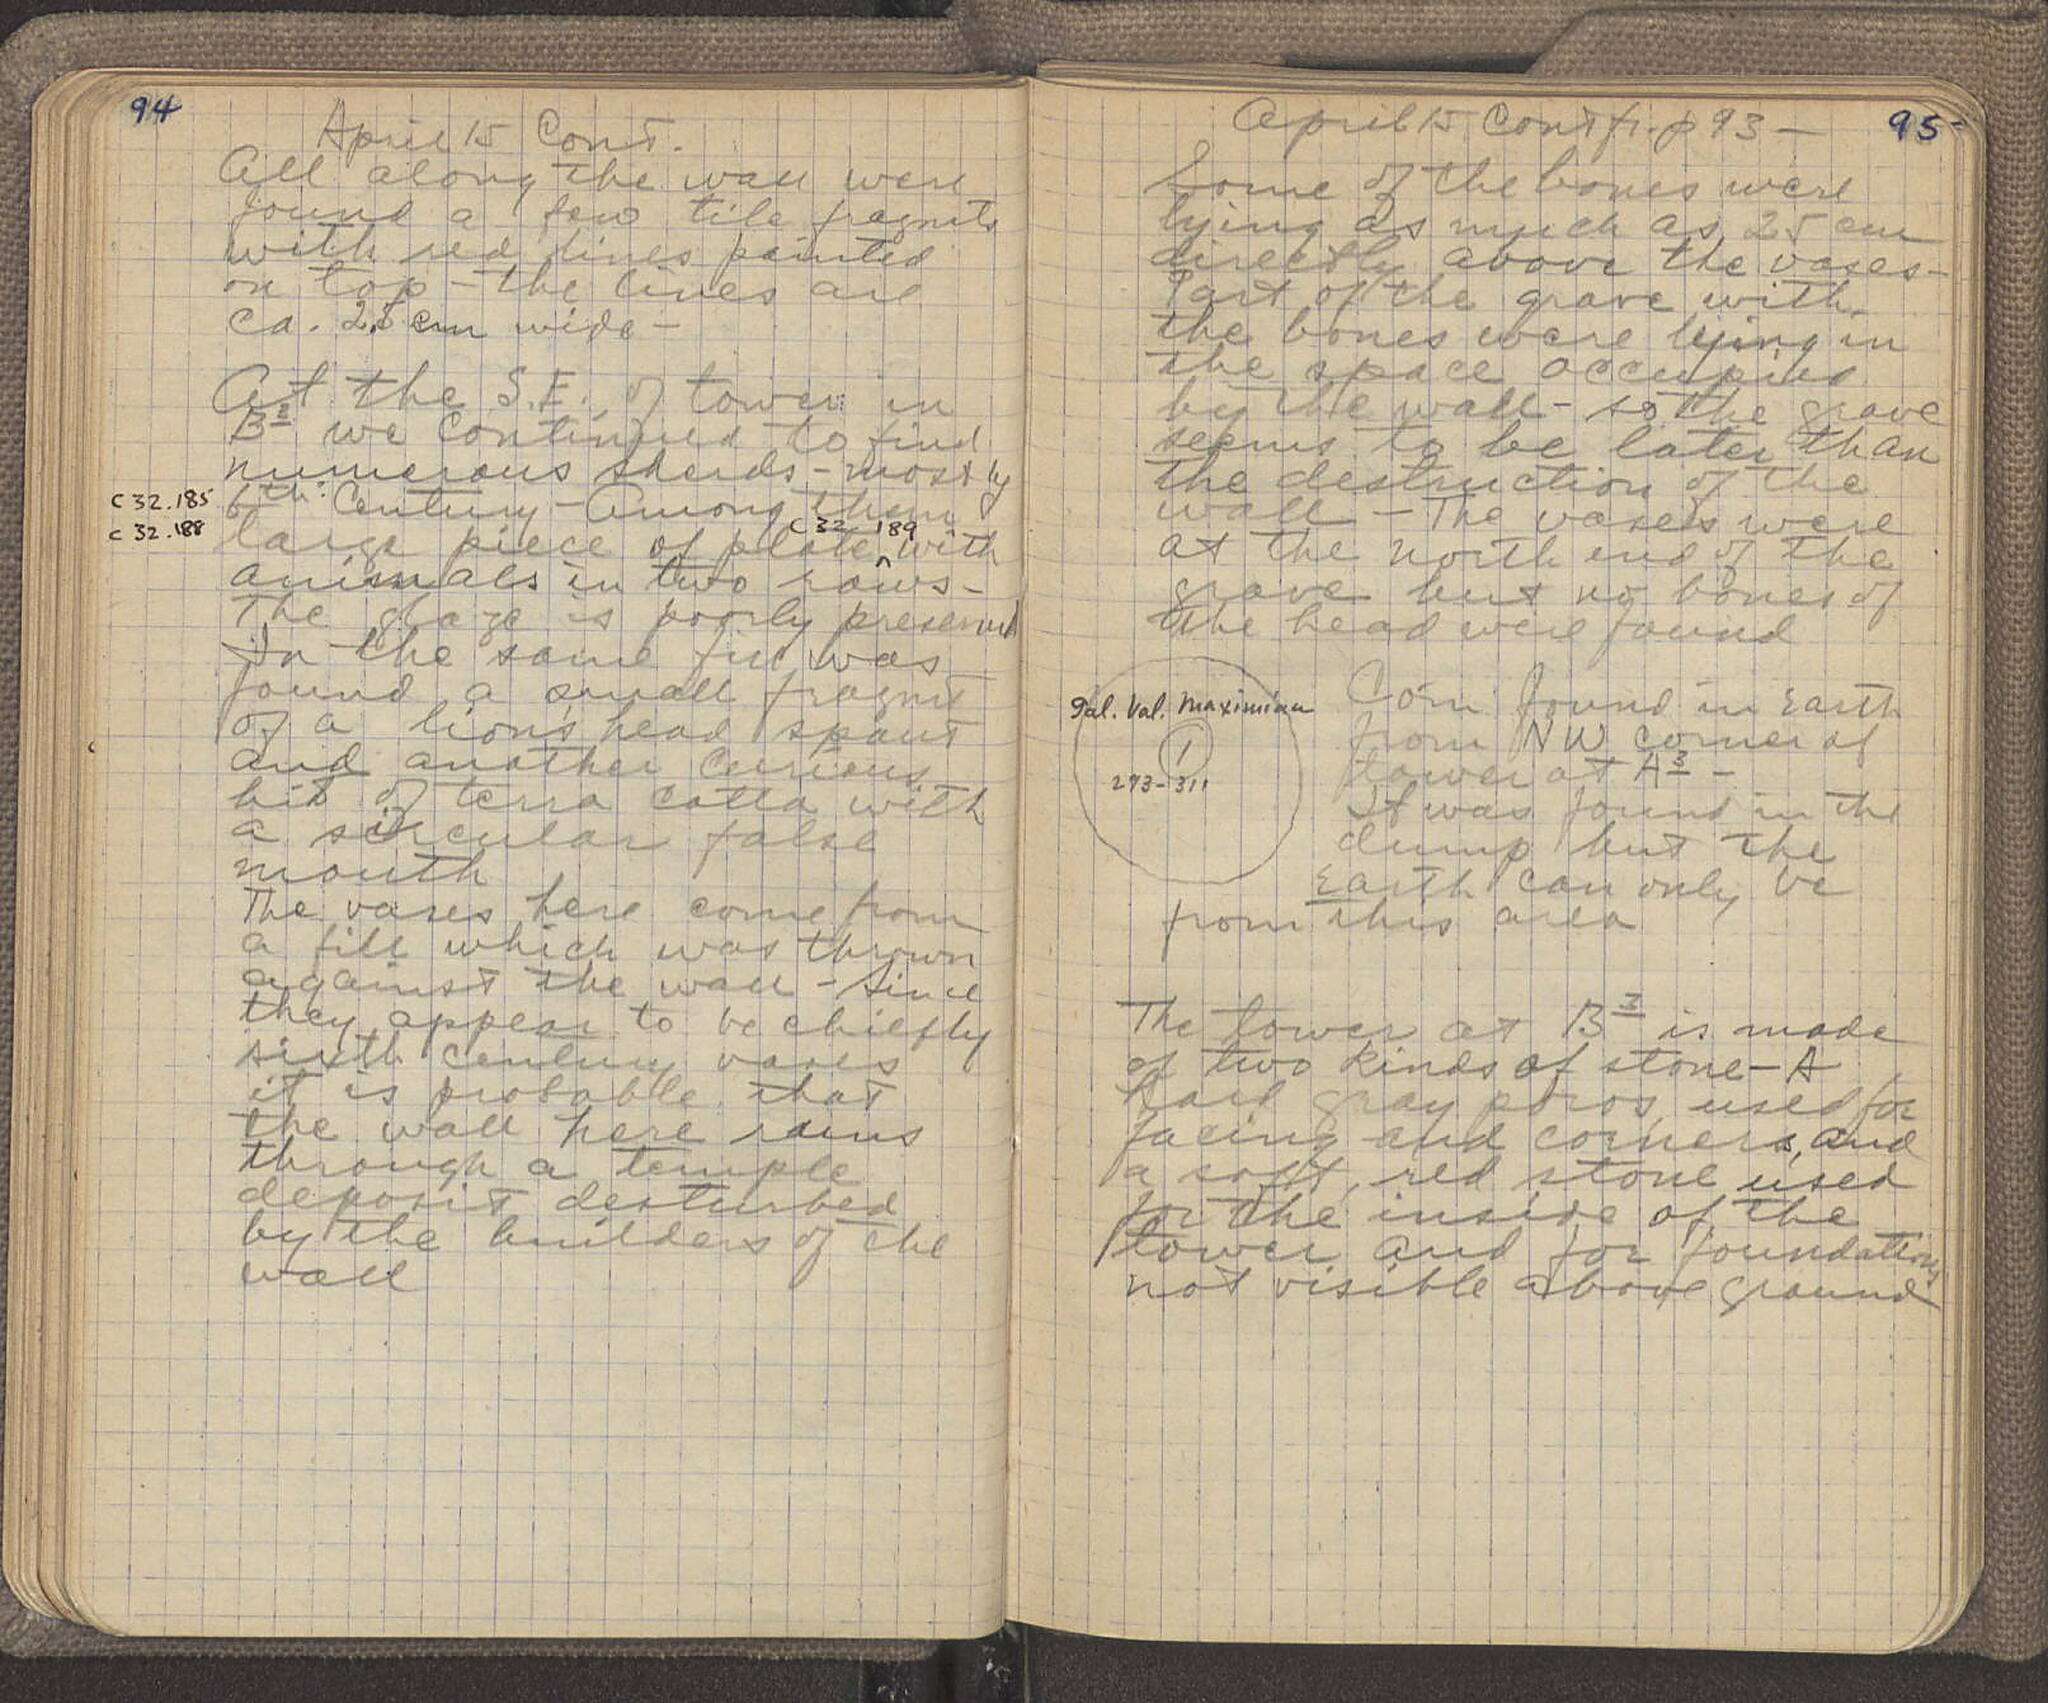 94
April 15 Cont.
All along the wall were
found a few tile fragmts
with red lines painted
on top - the lines are
ca. 2.5 cm wide -
At the S.E. of tower in
B3 we continued to find
numerous sherds - mostly
C 32.185
6th Century - Among them
C 32.188
C 32 189
large piece of plate ^ with
animals in two rows -
The glaze is poorly preserved
In the same fill was
found a small fragmt
of a lion's head spout
and another curious
bit of terra cotta with
a sircular false
mouth
The vases here come from
a fill which was thrown
against the wall - Since
they appear to be chiefly
sixth century vases
it is probable that
the wall here runs
through a temple
deposit desturbed
by the builders of the
wall
95
April 15 Cont fr. p 93 -
Some of the bones were
lying as much as 25 cm
directly above the vases -
Part of the grave with
the bones were lying in
the space occupied
by the wall - so the grave
seems to be later than
the destruction of the
wall - The vases were
at the north end of the
grave but no bones of
the head were found
Gal. Val. Maximian
1
273-311
Coin found in Earth
from NW corner of
tower at A3 -
It was found in the
dump but the
Earth can only be
from this area
The tower at B3 is made
of two kinds of stone - A
hard gray poros used for
facing and corners, and
a soft, red stone used
for the inside of the
tower and for foundations
not visible above ground